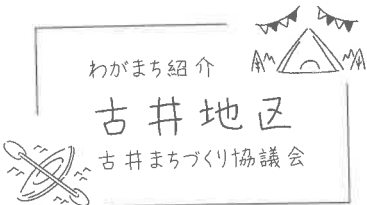 わがまち紹介
古井地区
古井まちづくり協議会